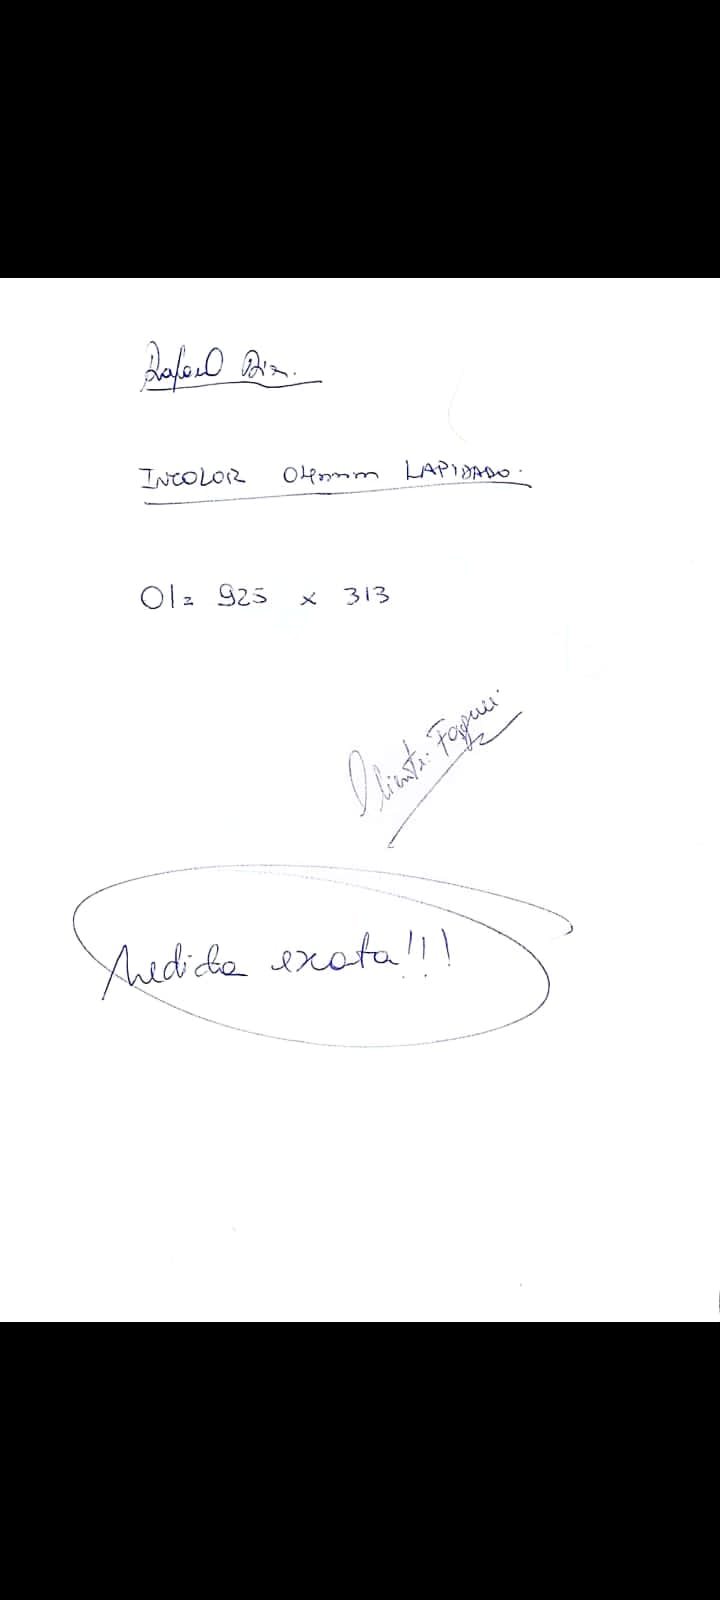 Rafael
INCOLOR 04mmm LAPIDADO.
01= 925 x 313
Cliente:
Medida exata!!!